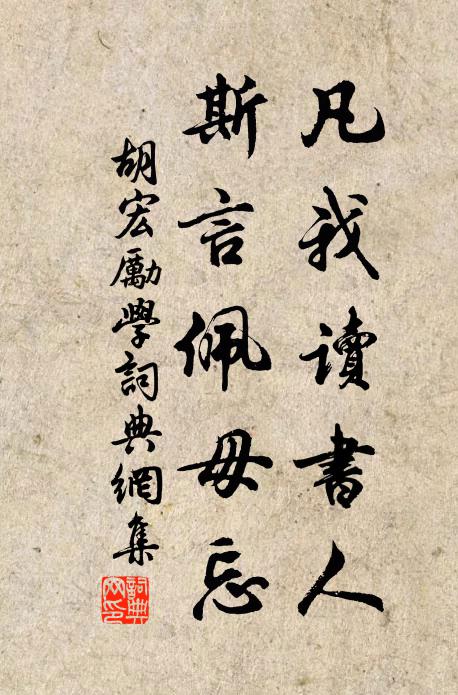 凡我讀書人
斯言佩毋忘
胡宏勵學詞典網集
詞典網印